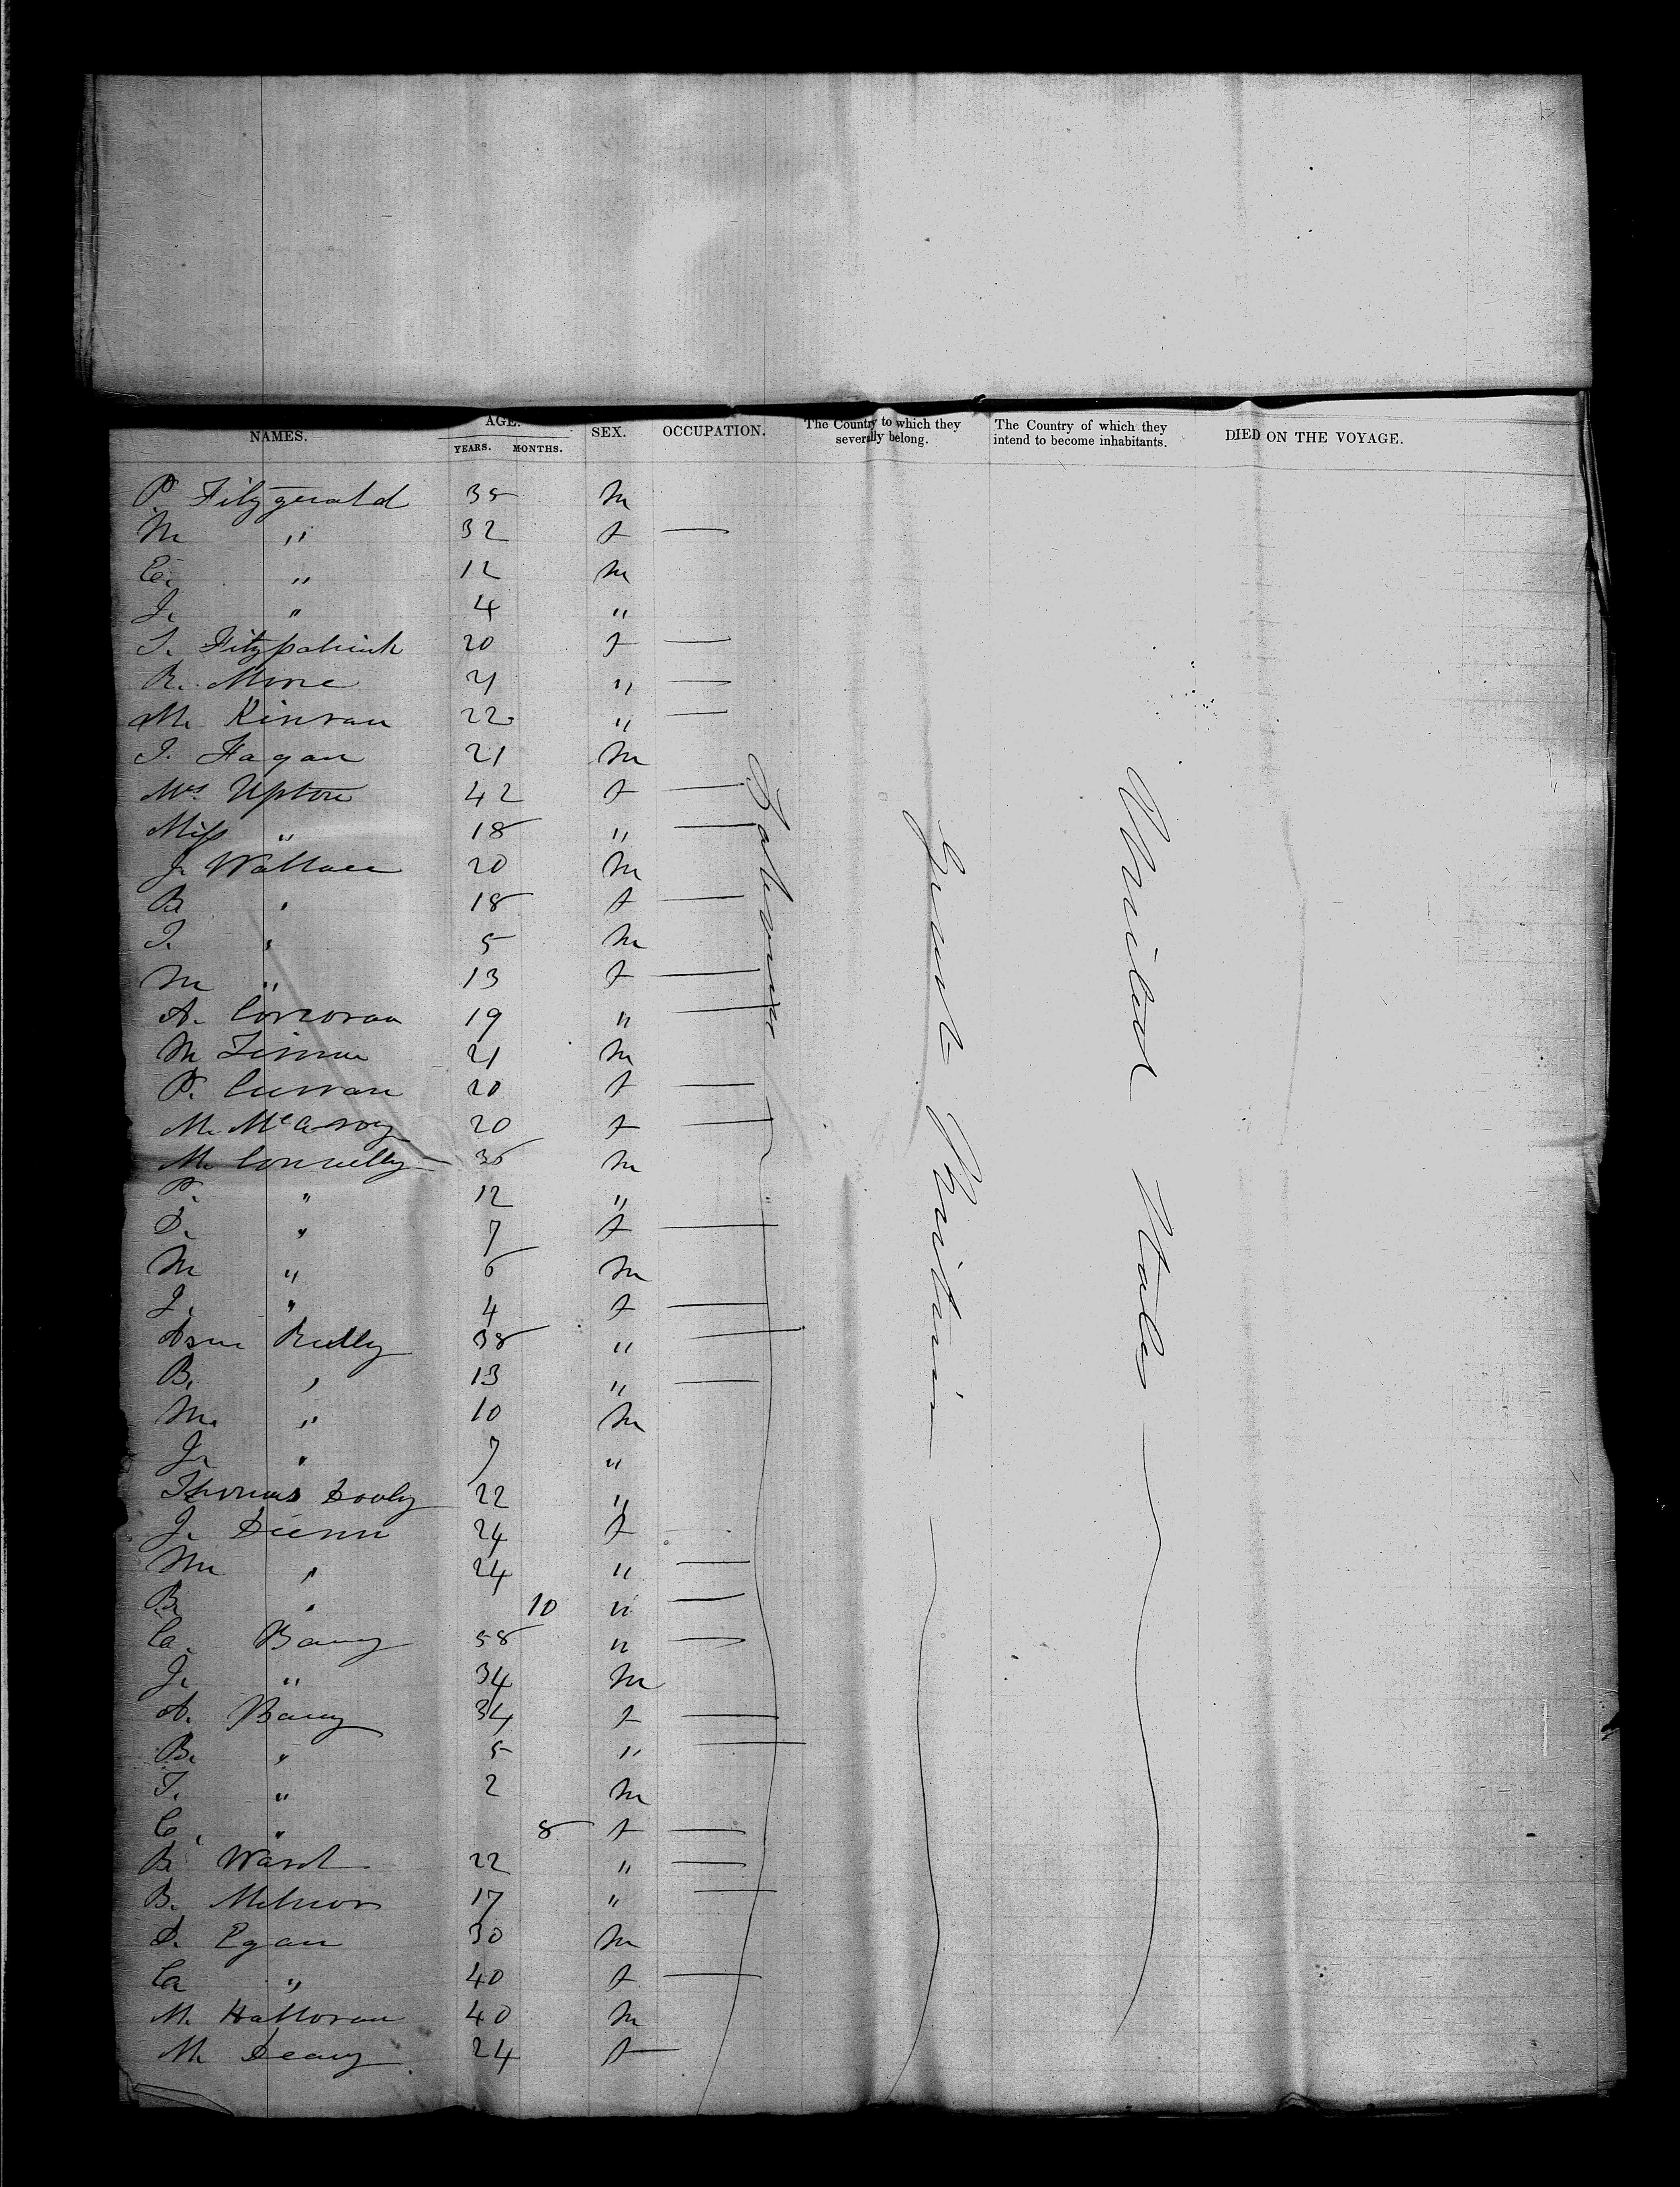 NAMES. AGE. YEARS. MONTHS. SEX. OCCUPATION. The Country to which they severally belong. The Country of which they intend to become inhabitants. DIED ON THE VOYAGE.
P. Fitzgerald 35 m
M " 32 f —
C. " 12 m
J. " 4 "
S. Fitzpatrick 20 f —
R. 21 " —
M. 22 " —
J. Fagan 21 m
Mrs Upton 42 f —
Miss " 18 " —
J. Wallace 20 m
B " 18 f —
T. " 5 m
M " 13 f —
A. Corcoran 19 " —
M 21 m
P. Curran 20 f —
M. McAvoy 20 f —
M. Connelly 36 m
P. " 12 "
D. " 7 f —
M " 6 m
J. " 4 f —
Ann Reilly 38 " —
B. " 13 " —
M. " 10 m
J. " 7 "
Thomas Dooly 22 "
J. Dunn 24 f
M " 24 " —
B. " 10 " —
Ca. Barry 58 " —
J. " 34 m
A. Barry 34 f —
B. " 5 " —
T. " 2 m
C. " 8 f —
B. Ward 22 " —
B. 17 " —
D. Egan 30 m
Ca " 40 f —
M. Halloran 40 m
M. Deary 24 f —
Labourers
Great Britain
United States